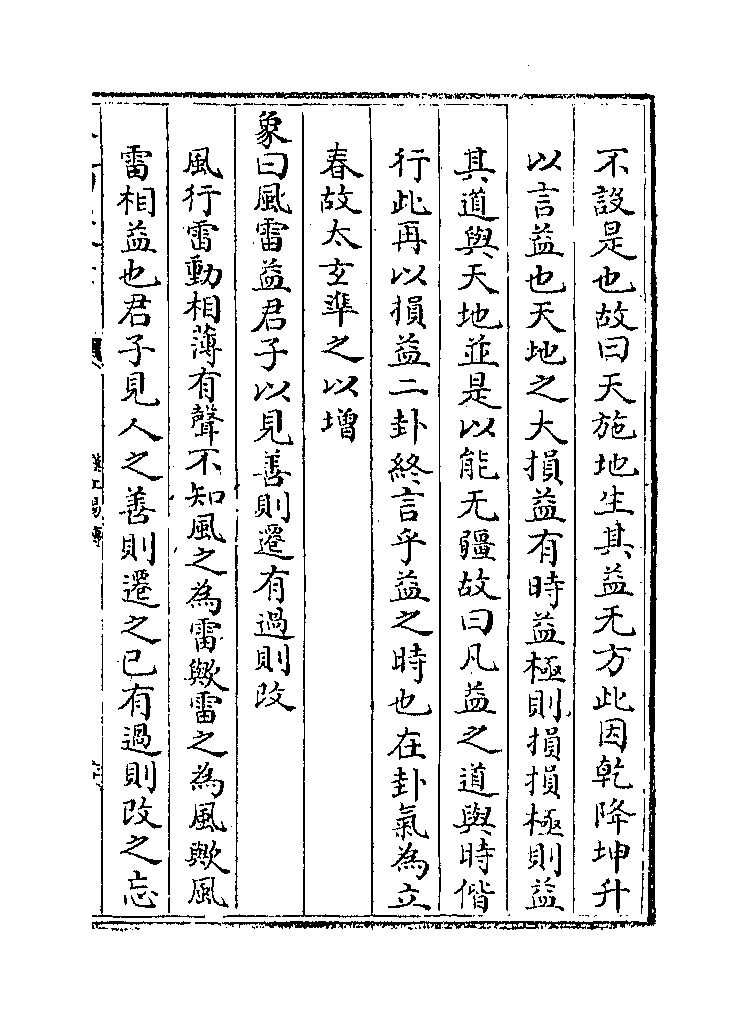 不設是也故曰天施地生其益无方此因乾降坤升
以言益也天地之大損益有時益極則損損極則益
其道與天地並是以能无疆故曰凡益之道與時偕
行此再以損益二卦終言乎益之時也在卦氣為立
春故太玄準之以增
象曰風雷益君子以見善則遷有過則改
風行雷動相薄有聲不知風之為雷歟雷之為風歟風
雷相益也君子見人之善則遷之已有過則改之忘
漢上易傳